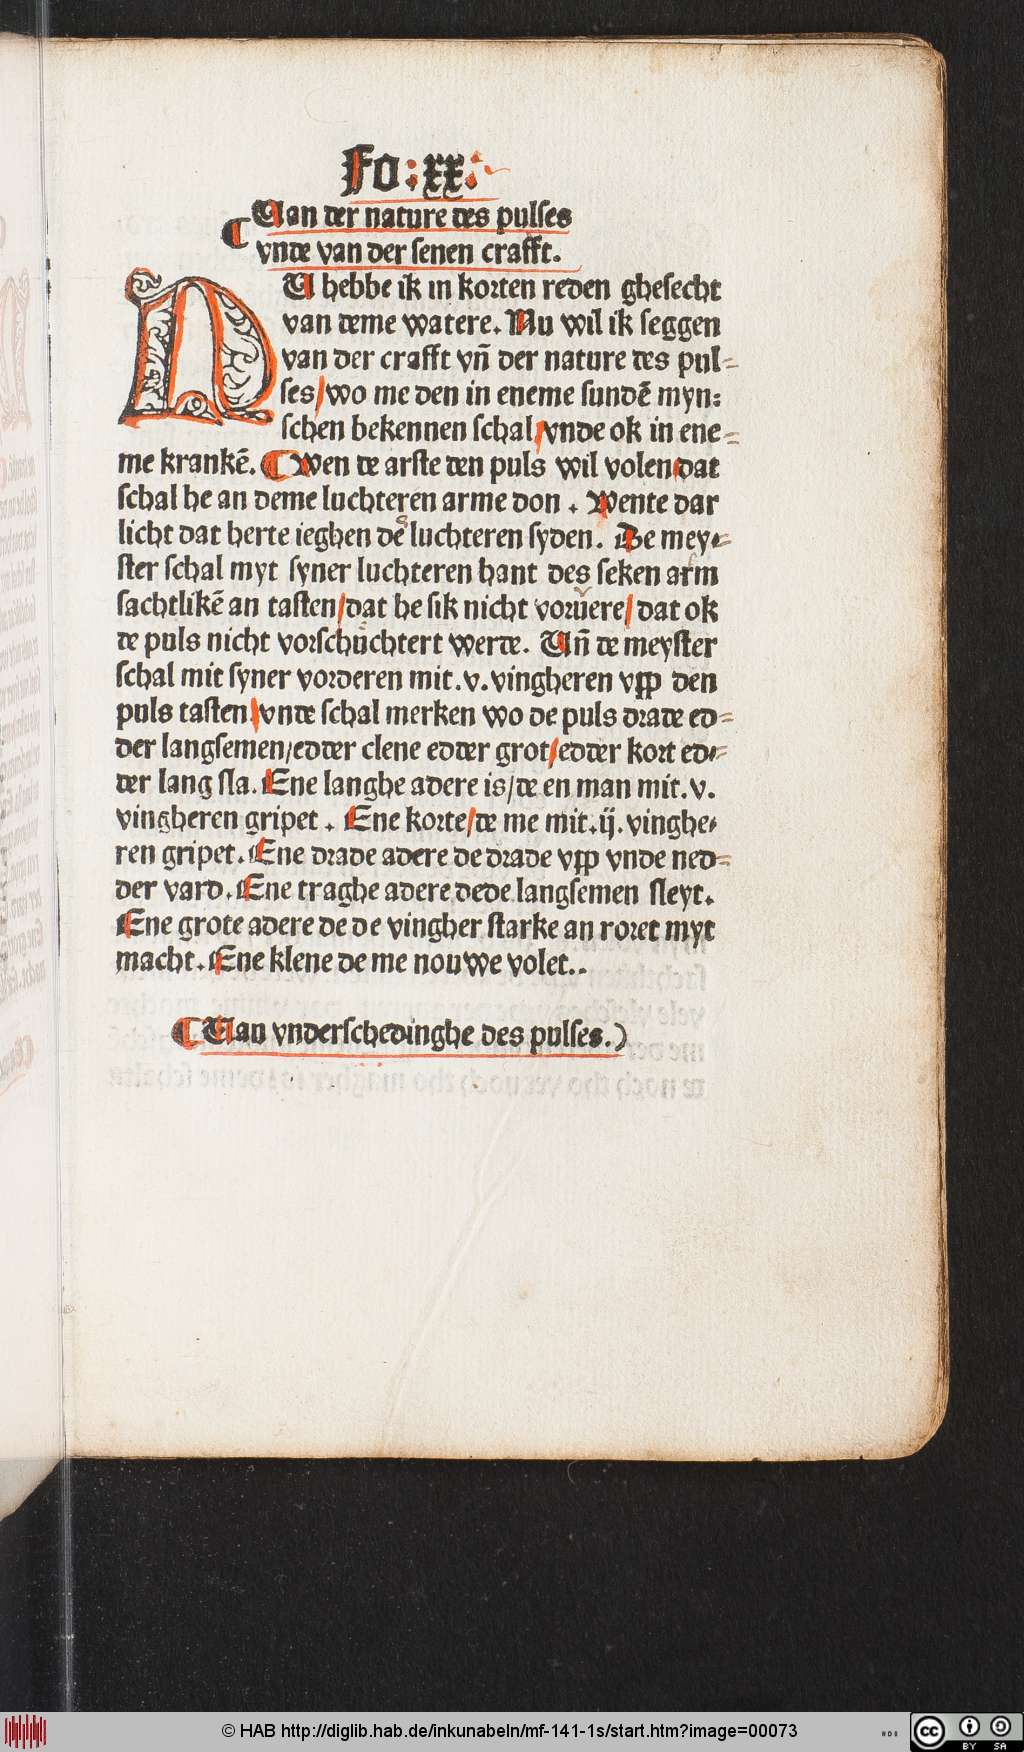 Fo: xx:
¶ Uan der nature des pulses
vnde van der senen crafft.
NU hebbe ik in korten reden ghesecht
van deme watere. Nu wil ik seggen
van der crafft vñ der nature des pul-
ses/ wo me den in eneme sundē myn-
schen bekennen schal/ vnde ok in ene-
me krankē. ¶ Wen de arste den puls wil volen/ dat
schal he an deme luchteren arme don . Wente dar
licht dat herte ieghen deˢ luchteren syden. De mey-
ster schal myt syner luchteren hant des seken arm
sachtlikē an tasten/ dat he sik nicht voruͤere/ dat ok
de puls nicht vorschuͤchtert werde. Uñ de meyster
schal mit syner vorderen mit .v. vingheren vpp den
puls tasten/ vnde schal merken wo de puls drade ed-
der langsemen/ edder clene edder grot/ edder kort ed-
der lang sla. Ene langhe adere is/ de en man mit .v.
vingheren gripet . Ene korte/ de me mit .ij. vinghe-
ren gripet. Ene drade adere de drade vpp vnde ned-
der vard. Ene traghe adere dede langsemen sleyt.
Ene grote adere de de vingher starke an roret myt
macht. Ene klene de me nouwe volet..
¶ Uan vnderschedinghe des pulses.)
© HAB http://diglib.hab.de/inkunabeln/mf-141-1s/start.htm?image=00073
cc BY SA